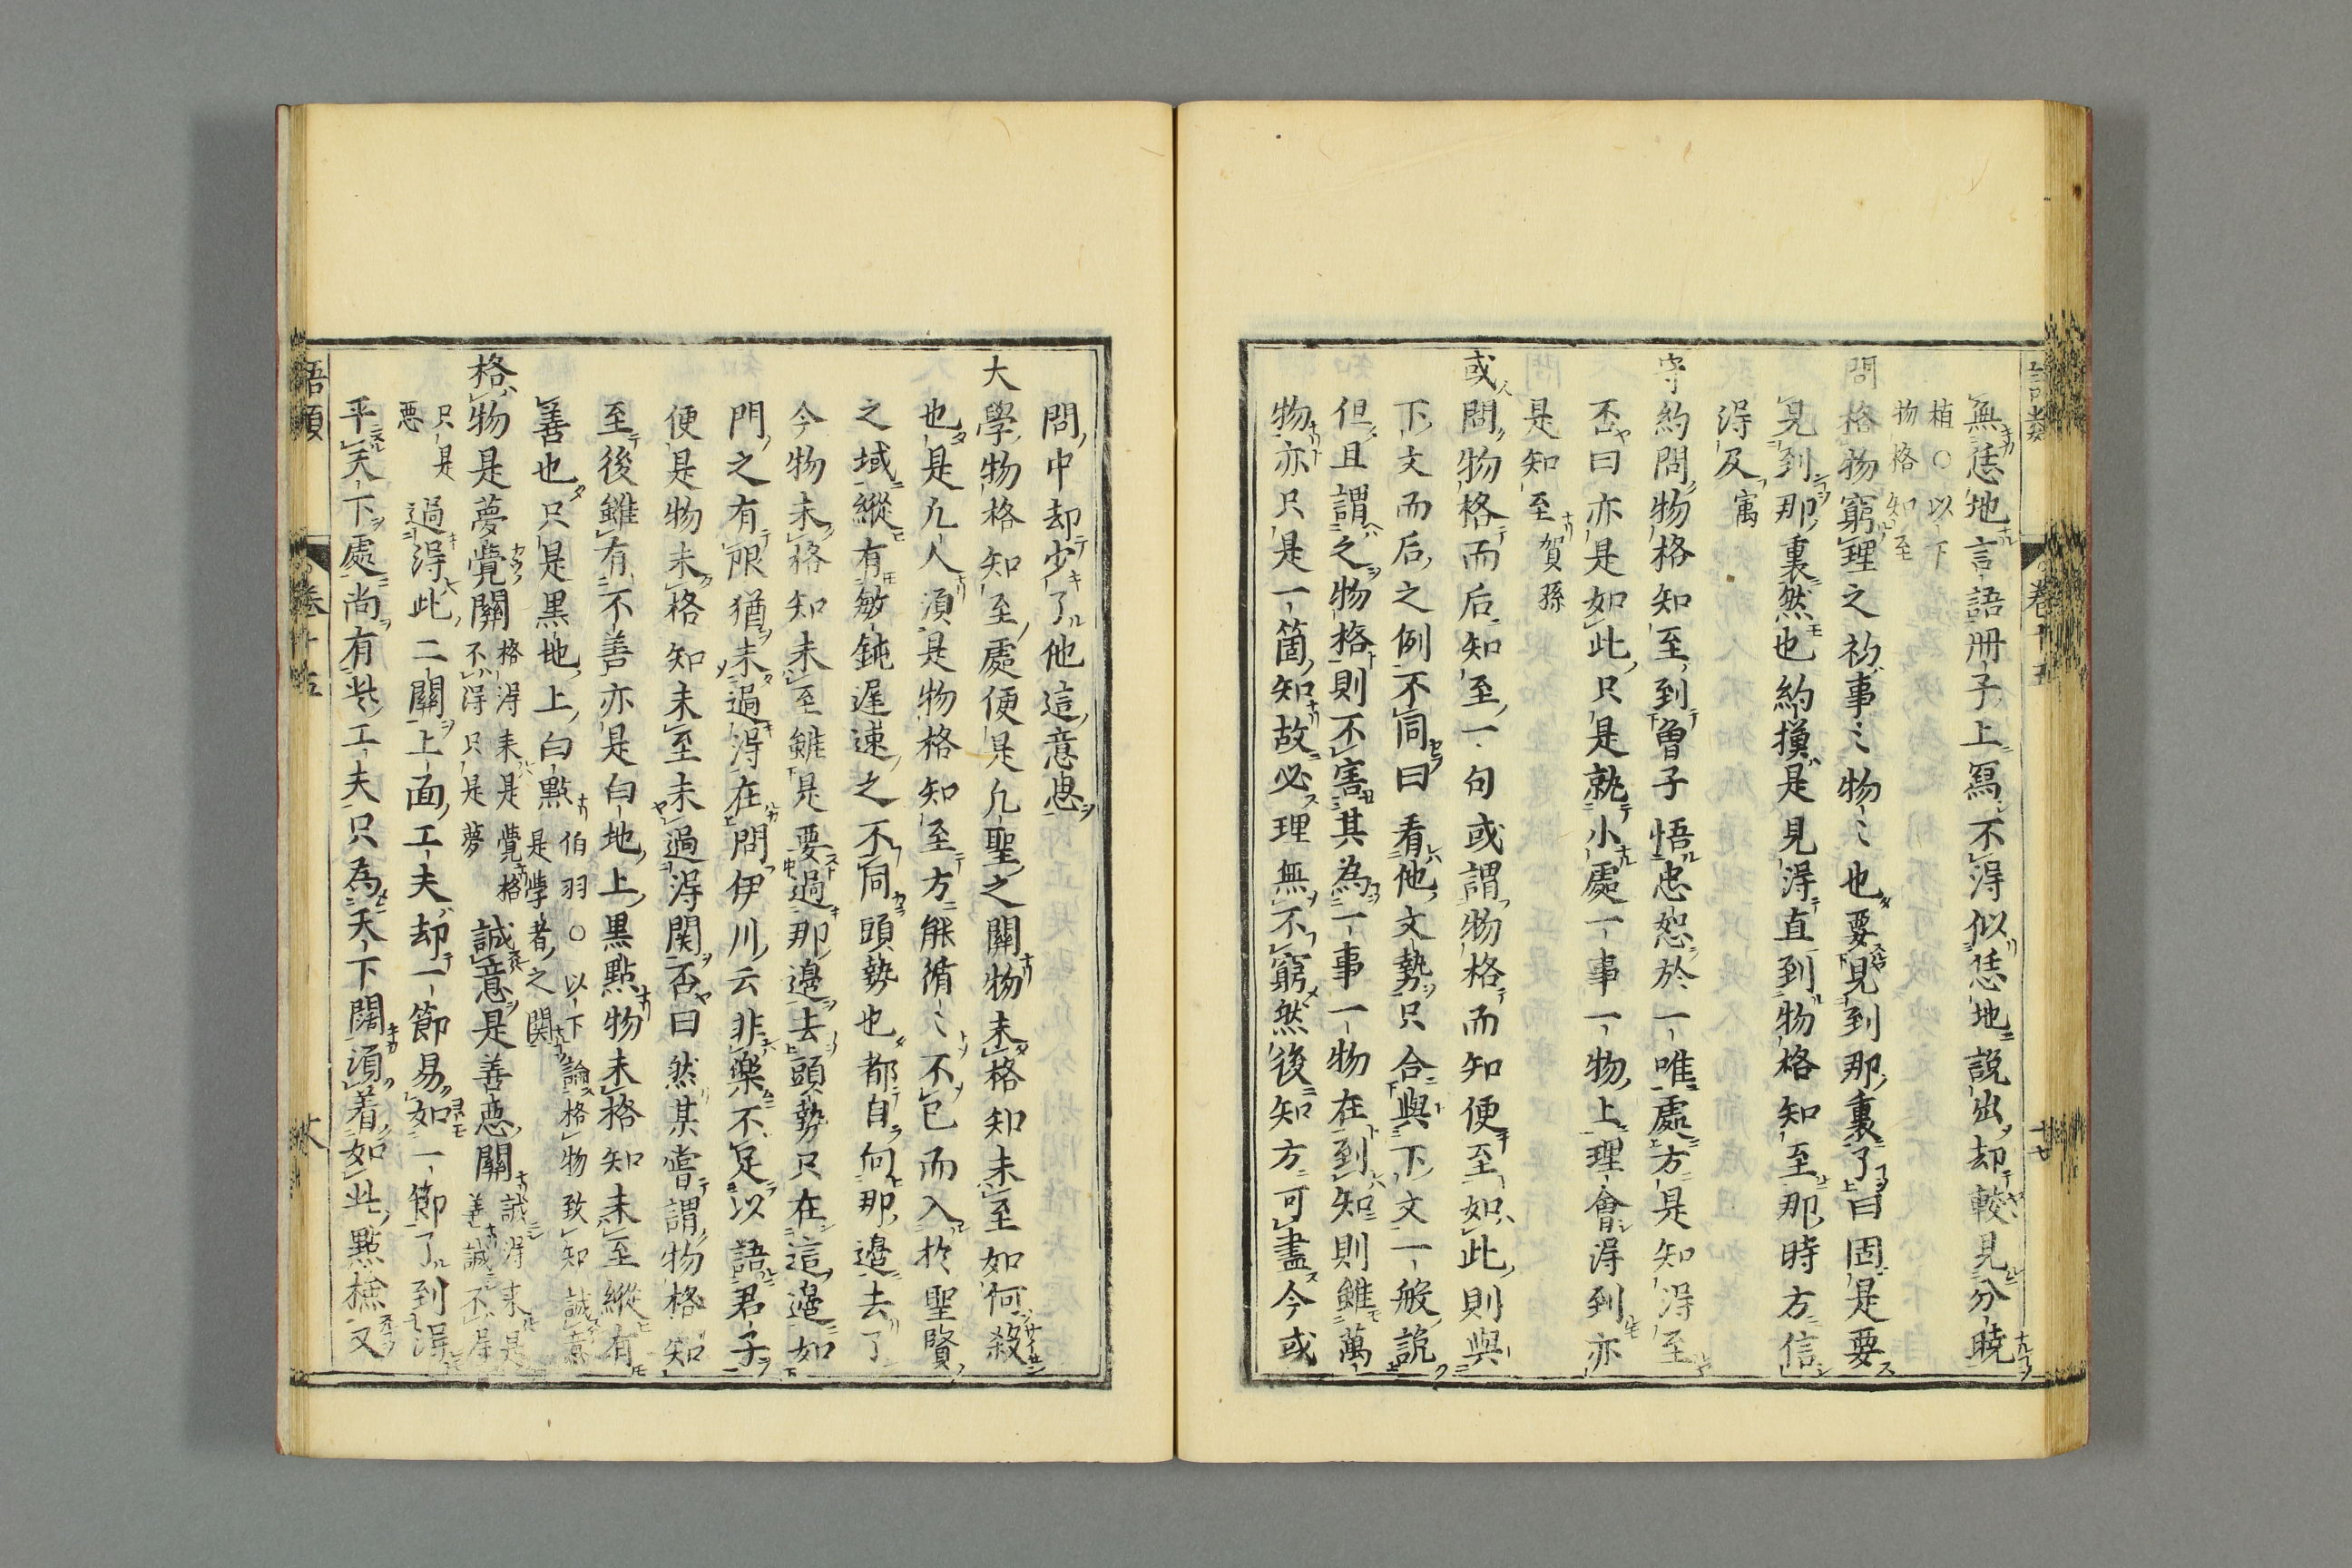 無恁地言語册子上寫不得似恁地說出却較見分曉
植○以下
物格知至
問格物窮理之初事〻物〻也要見到那裏了曰固是要
見到那裏然也約摸是見得直到物格知至那時方信
得及寓
守約問物格知至到曾子悟忠恕於一唯處方是知得至
否曰亦是如此只是就小處一事一物上理會得到亦
是知至賀孫
或問物格而后知至一句或謂物格而知便至如此則與
下文而后之例不同曰看他文勢只合與下文一般說
但且謂之物格則不害其為一事一物在到知則雖萬
物亦只是一箇知故必理無不窮然後知方可盡今或
問中却少了他這意思
大學物格知至處便是凡聖之關物未格知未至如何殺
也是凡人須是物格知至方能循〻不已而入於聖賢
之域縱有敏鈍遲速之不同頭勢也都自向那邊去了
今物未格知未至雖是要過那邊去頭勢只在這邊如
門之有限猶未過得在問伊川云非樂不足以語君子
便是物未格知未至未過得関否曰然某嘗謂物格知
至後雖有不善亦是白地上黒點物未格知未至縱有
善也只是黒地上白點伯羽○以下論格物致知誠意
是學者之関
格物是夢覺關格得来是覺格
不得只是夢誠意是善惡關誠得来是
善誠不得
只是
惡過得此二關上面工夫却一節易如一節了到得
平天下處尚有些工夫只為天下闊須着如此點檢又
語類
卷十五